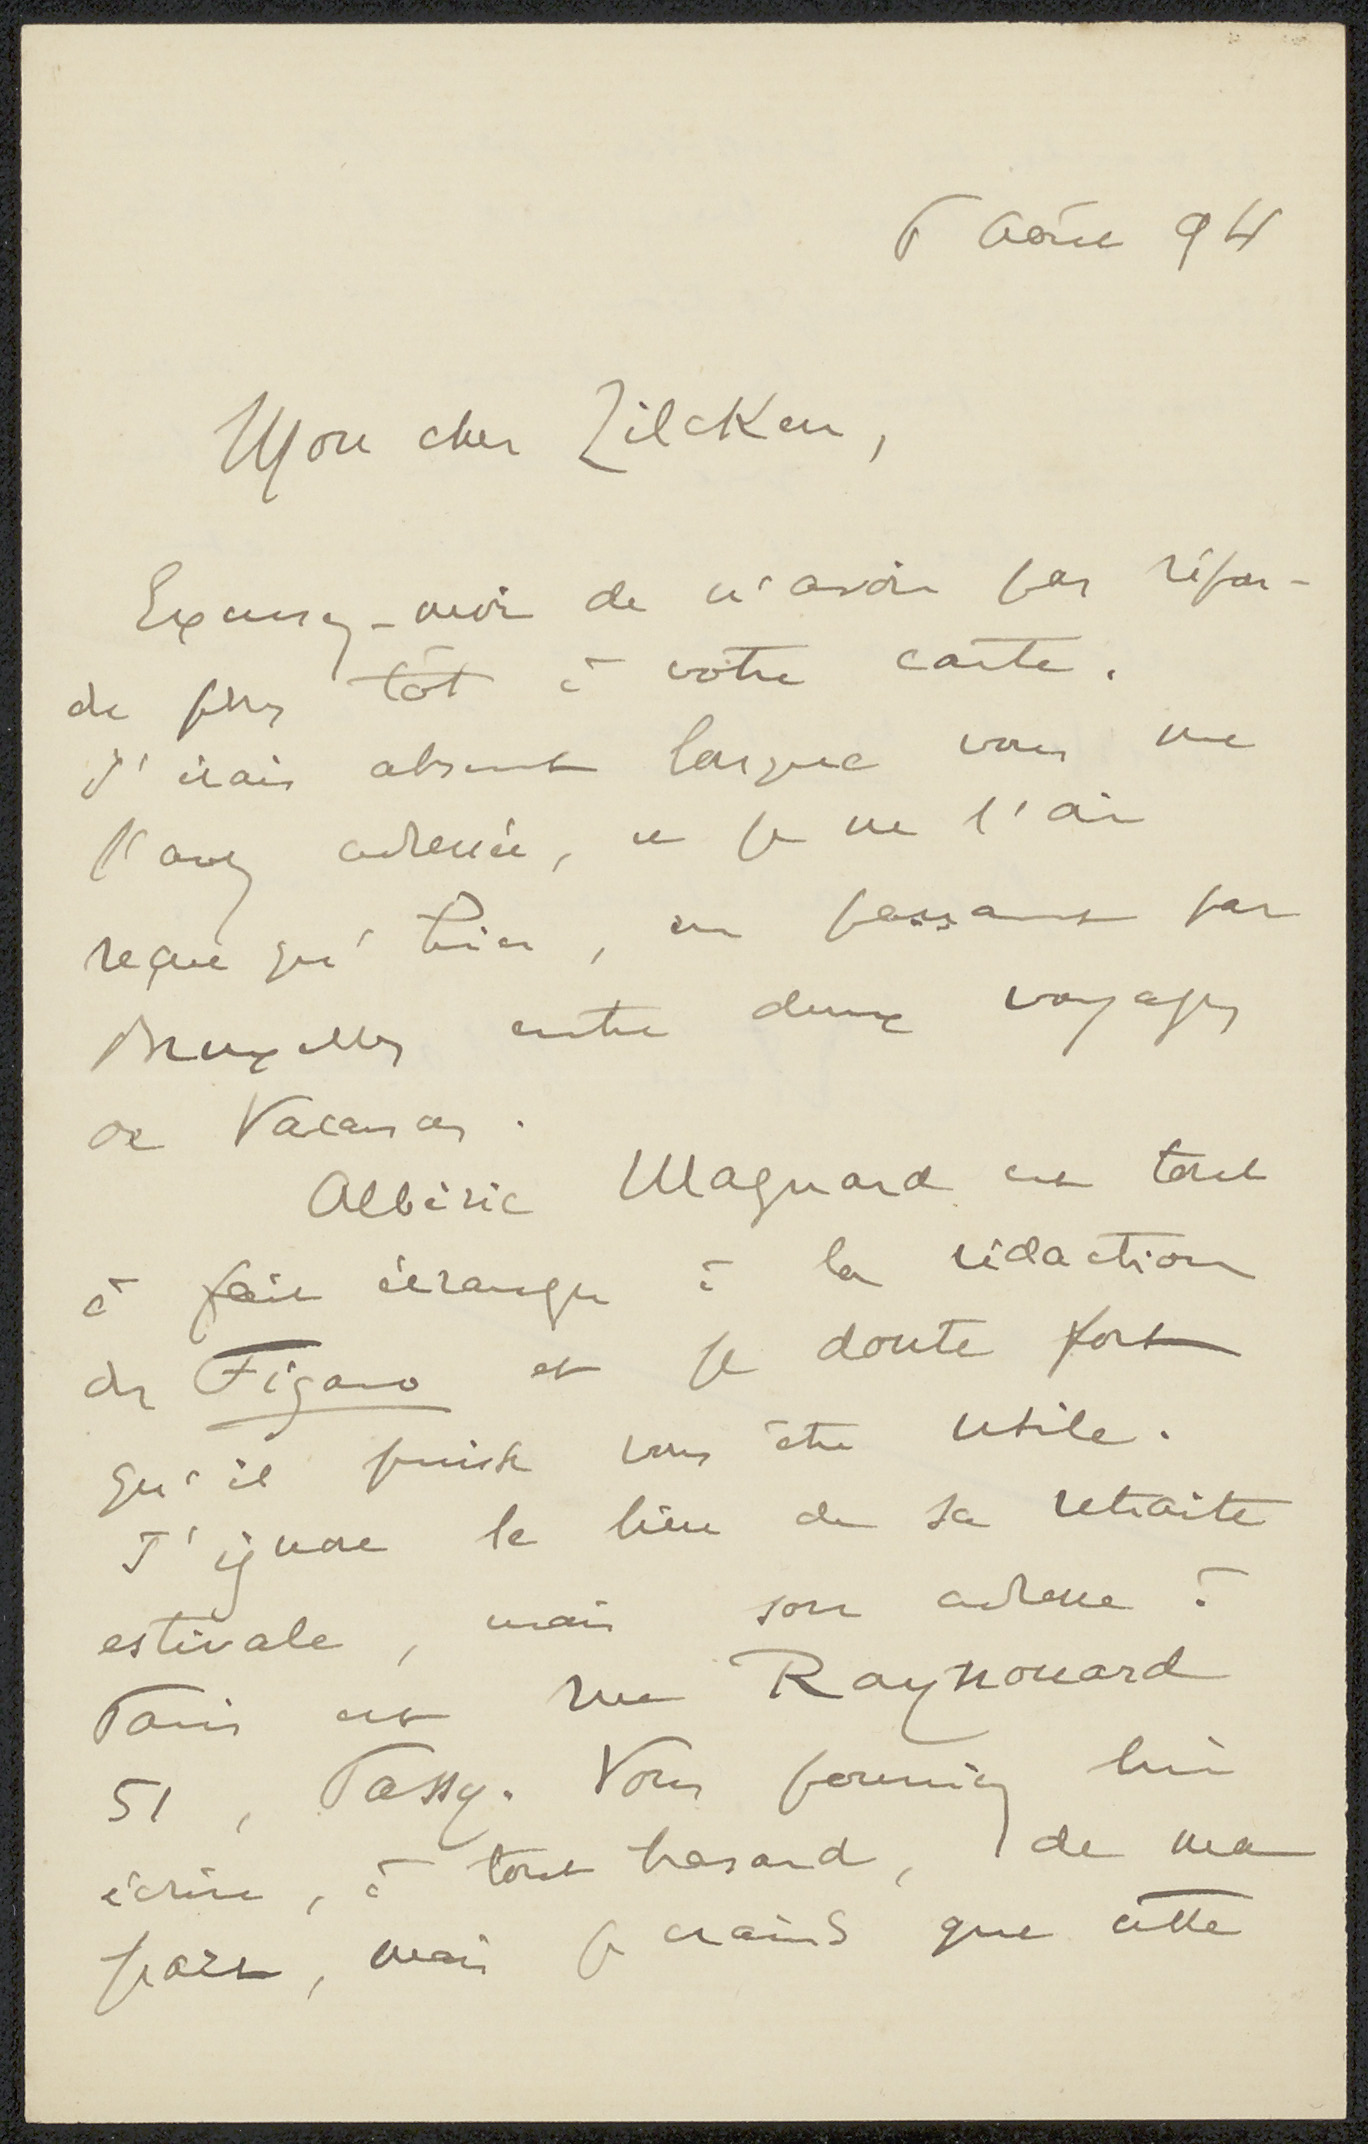 août 94
Mon cher Zilcken,
Excusez-moi de n'avoir pas répon-
du plus tôt à votre carte.
J'étais absent lorsque vous me
l'avez adressée, et je ne l'ai
reçue qu'hier, en passant par
Bruxelles entre deux voyages
de vacances.
Albéric Magnard est tout
à fait étranger à la rédaction
du Figaro et je doute fort
qu'il puisse vous être utile.
J'ignore le lieu de sa retraite
estivale, mais son adresse à
Paris est rue Raynouard
51, Passy. Vous pourriez lui
écrire, à tout hasard, de ma
part, mais je crains que cette